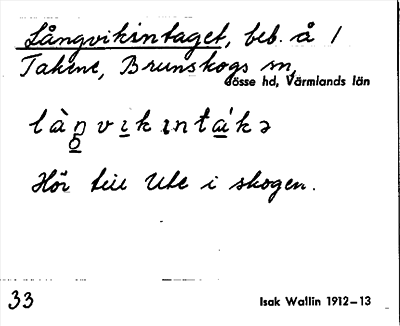 Långvikintaget, beb. å 1
Takene, Brunskogs sn,
Jösse hd, Värmlands län
Hör till Ute i skogen.
33
Isak Wallin 1912–13